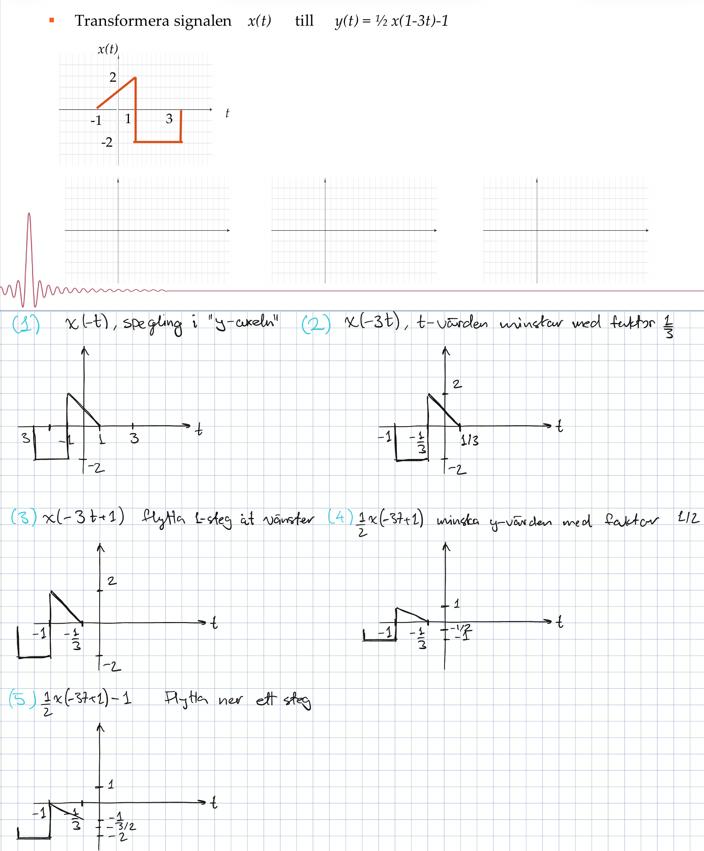 ▪ Transformera signalen x(t) till y(t) = ½ x(1-3t)-1
x(t)
2
-1 1 3 t
-2
(1) x(-t), spegling i "y-axeln" (2) x(-3t), t-värden minskar med faktor 1/3
2
3 -1 1 3 t
-1 -1/3 1/3 t
-2
-2
(3) x(-3t+1) flytta 1-steg åt vänster (4) 1/2 x(-3t+1) minska y-värden med faktor 1/2
2
1
-1 -1/3 t
-1 -1/3 -1/2 t
-1
-2
(5) 1/2 x(-3t+1) - 1 Flytta ner ett steg
1
-1 -1/3 t
-1
-3/2
-2